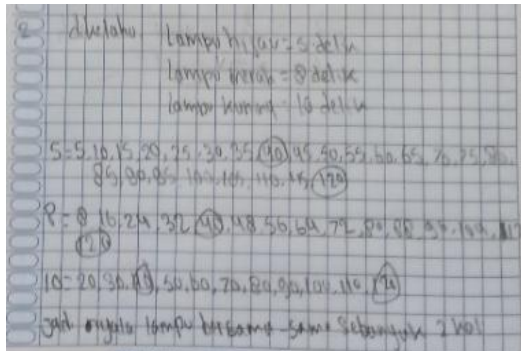 2 diketahui lampu hijau = 5 detik
lampu merah = 8 detik
lampu kuning = 10 detik
5 = 5, 10, 15, 20, 25, 30, 35, 40, 45, 50, 55, 60, 65, 70, 75, 80,
85, 90, 95, 100, 105, 110, 115, 120
8 = 8, 16, 24, 32, 40, 48, 56, 64, 72, 80, 88,
120
10 = 20, 30, 40, 50, 60, 70, 80, 90, 100, 110, 120
jadi nyala lampu bersama-sama sebanyak 2 kali